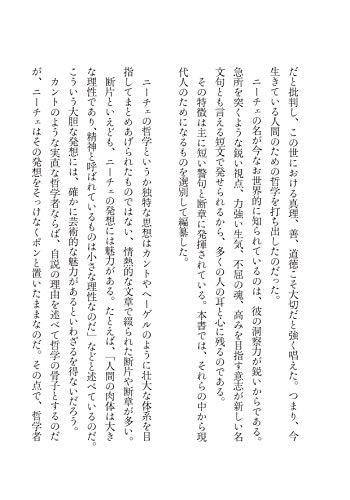 だと批判し、この世における真理、善、道徳こそ大切だと強く唱えた。つまり、今
生きている人間のための哲学を打ち出したのだった。
ニーチェの名が今なお世界的に知られているのは、彼の洞察力が鋭いからである。
急所を突くような鋭い視点、力強い生気、不屈の魂、高みを目指す意志が新しい名
文句とも言える短文で発せられるから、多くの人の耳と心に残るのである。
その特徴は主に短い警句と断章に発揮されている。本書では、それらの中から現
代人のためになるものを選別して編纂した。
ニーチェの哲学というか独特な思想はカントやヘーゲルのように壮大な体系を目
指してまとめあげられたものではない。情熱的な文章で綴られた断片や断章が多い。
断片といえども、ニーチェの発想には魅力がある。たとえば、「人間の肉体は大き
な理性であり、精神と呼ばれているものは小さな理性なのだ」などと述べているのだ。
こういう大胆な発想には、確かに芸術的な魅力があるといわざるを得ないだろう。
カントのような実直な哲学者ならば、自説の理由を述べて哲学の骨子とするのだ
が、ニーチェはその発想をそっけなくポンと置いたままなのだ。その点で、哲学者